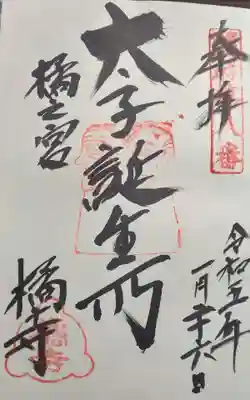 奉拝
令和五年
一月二十六日
太子誕生所
橘之宮
橘寺